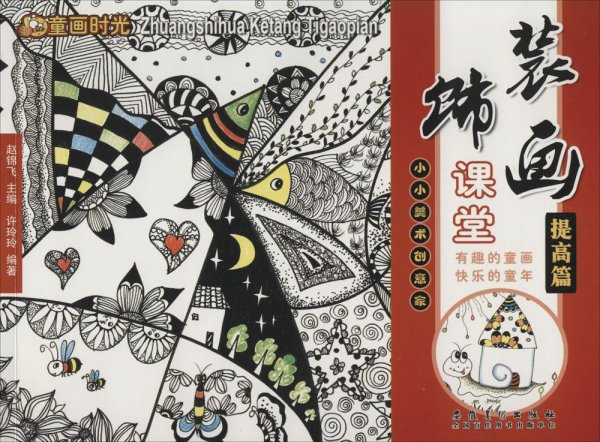 童画时光
Zhuangshihua Ketang Tigaopian
装饰画
课堂
提高篇
小小美术创意家
有趣的童画
快乐的童年
赵锦飞 主编 许玲玲 编著
安徽美术出版社
全国百佳图书出版单位